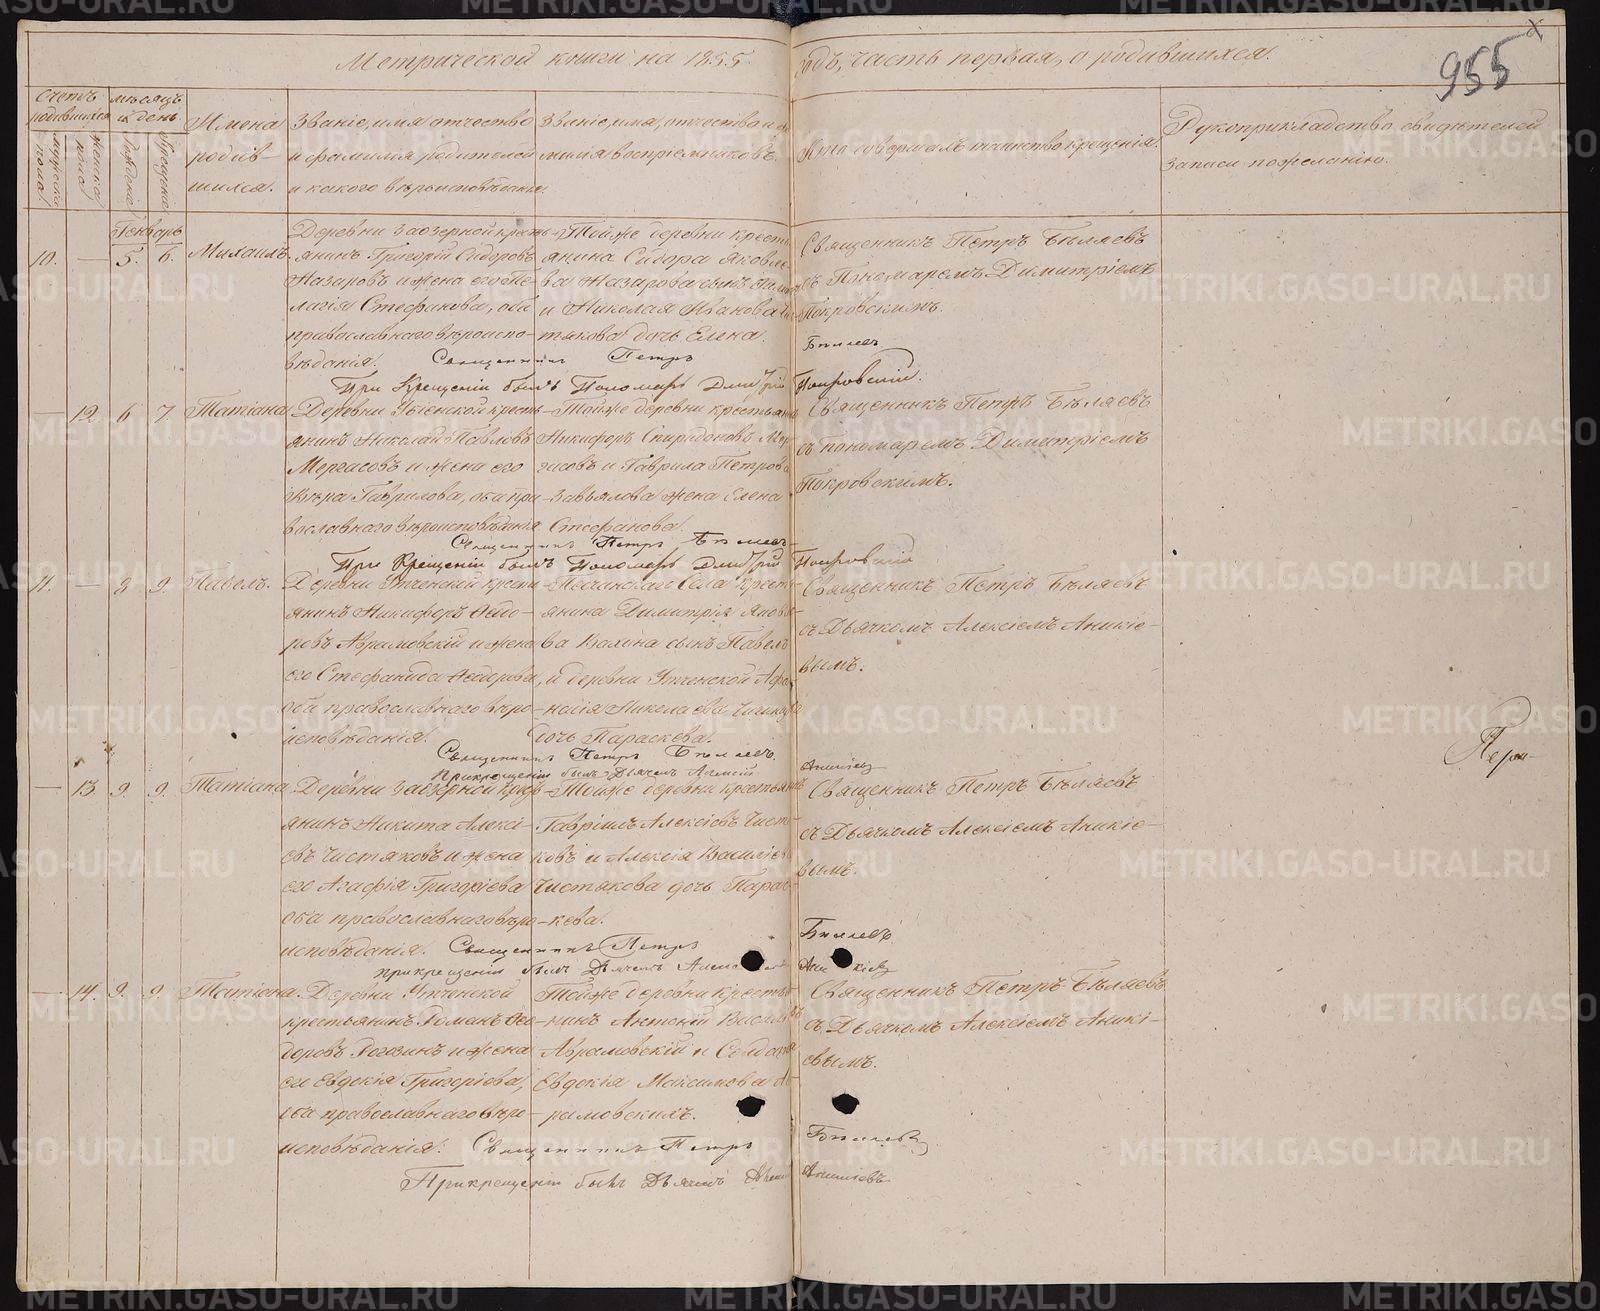 Метрической книги на 1855 годъ, часть первая, о родившихся.
955
Счетъ родившихся
мужеска пола
женска пола
мѣсяцъ и день
рожденія
крещенія
Имена родив-
шихся.
Званіе, имя отчество
и фамилія родителей
и какого вѣроисповѣданія
Званіе, имя, отчество и фа-
милія воспріемниковъ
Кто совершалъ таинство крещенія.
Рукоприкладство свидѣтелей
записи по желанію.
Генварь
10. — 5. 6. Михаилъ
Деревни Заозерной кресть-
янинъ Григорій Сидоровъ
Назаровъ и жена его Пе-
лагія Стефанова, оба
православнаго вѣроиспо-
вѣданія.
Тойже деревни кресть-
янина Сидора Яковле-
ва Назарова сынъ
и Николая Иванова
дочь Елена.
Священникъ Петръ Бѣляевъ
съ Пономаремъ Димитріемъ
Покровскимъ.
Священникъ Петръ Бѣляевъ
При Крещеніи былъ Пономарь Дмитрій Покровскій.
— 12. 6 7. Татіана
Деревни кресть-
янинъ Николай Павловъ
Мергасовъ и жена его
Вѣра Гаврилова, оба пра-
вославнаго вѣроисповѣданія
Тойже деревни крестьянинъ
Никифоръ Спиридоновъ Мер-
гасовъ и Гаврила Петрова
Завьялова жена Елена
Стефанова.
Священникъ Петръ Бѣляевъ
съ пономаремъ Димитріемъ
Покровскимъ.
Священникъ Петръ Бѣляевъ
При Крещеніи былъ Пономарь Дмитрій Покровскій
11. — 8 9. Павелъ.
Деревни Утченской кресть-
янинъ Никифоръ Ѳедо-
ровъ Аврамовскій и жена
его Стефанида Ѳедорова,
оба православнаго вѣро-
исповѣданія.
Песчанскаго Села кресть-
янина Димитрія Яковле-
ва Валина сынъ Павелъ
и деревни Утченской Афа-
насія Николаева
дочь Параскева.
Священникъ Петръ Бѣляевъ
съ Дьячкомъ Алексіемъ Аникіе-
вымъ.
Священникъ Петръ Бѣляевъ.
При крещеніи былъ Дьячекъ Алексій Аникіевъ
— 13. 9. 9. Татіана
Деревни Заозерной кресть-
янинъ Никита Алексі-
евъ Чистяковъ и жена
его Агафія Григоріева
оба православнаго вѣро-
исповѣданія.
Тойже деревни крестьянинъ
Гавріилъ Алексіевъ Чистя-
ковъ и Алексія Василіева
Чистякова дочь Парас-
кева.
Священникъ Петръ Бѣляевъ
съ Дьячкомъ Алексіемъ Аникіе-
вымъ.
Священникъ Петръ Бѣляевъ
при крещеніи былъ Дьячекъ Алексій Аникіевъ
— 14. 9. 9. Татіана.
Деревни Утченской
крестьянинъ Романъ Ѳео-
доровъ Рогозинъ и жена
его Евдокія Григоріева,
оба православнаго вѣро-
исповѣданія.
Тойже деревни крестья-
нинъ Антоній Василіевъ
Аврамовскій и Солдатка
Евдокія Максимова Ав-
рамовскихъ.
Священникъ Петръ Бѣляевъ
съ Дьячкомъ Алексіемъ Аникі-
евымъ.
Священникъ Петръ Бѣляевъ
При крещеніи былъ Дьячекъ Алексій Аникіевъ
METRIKI.GASO-URAL.RU